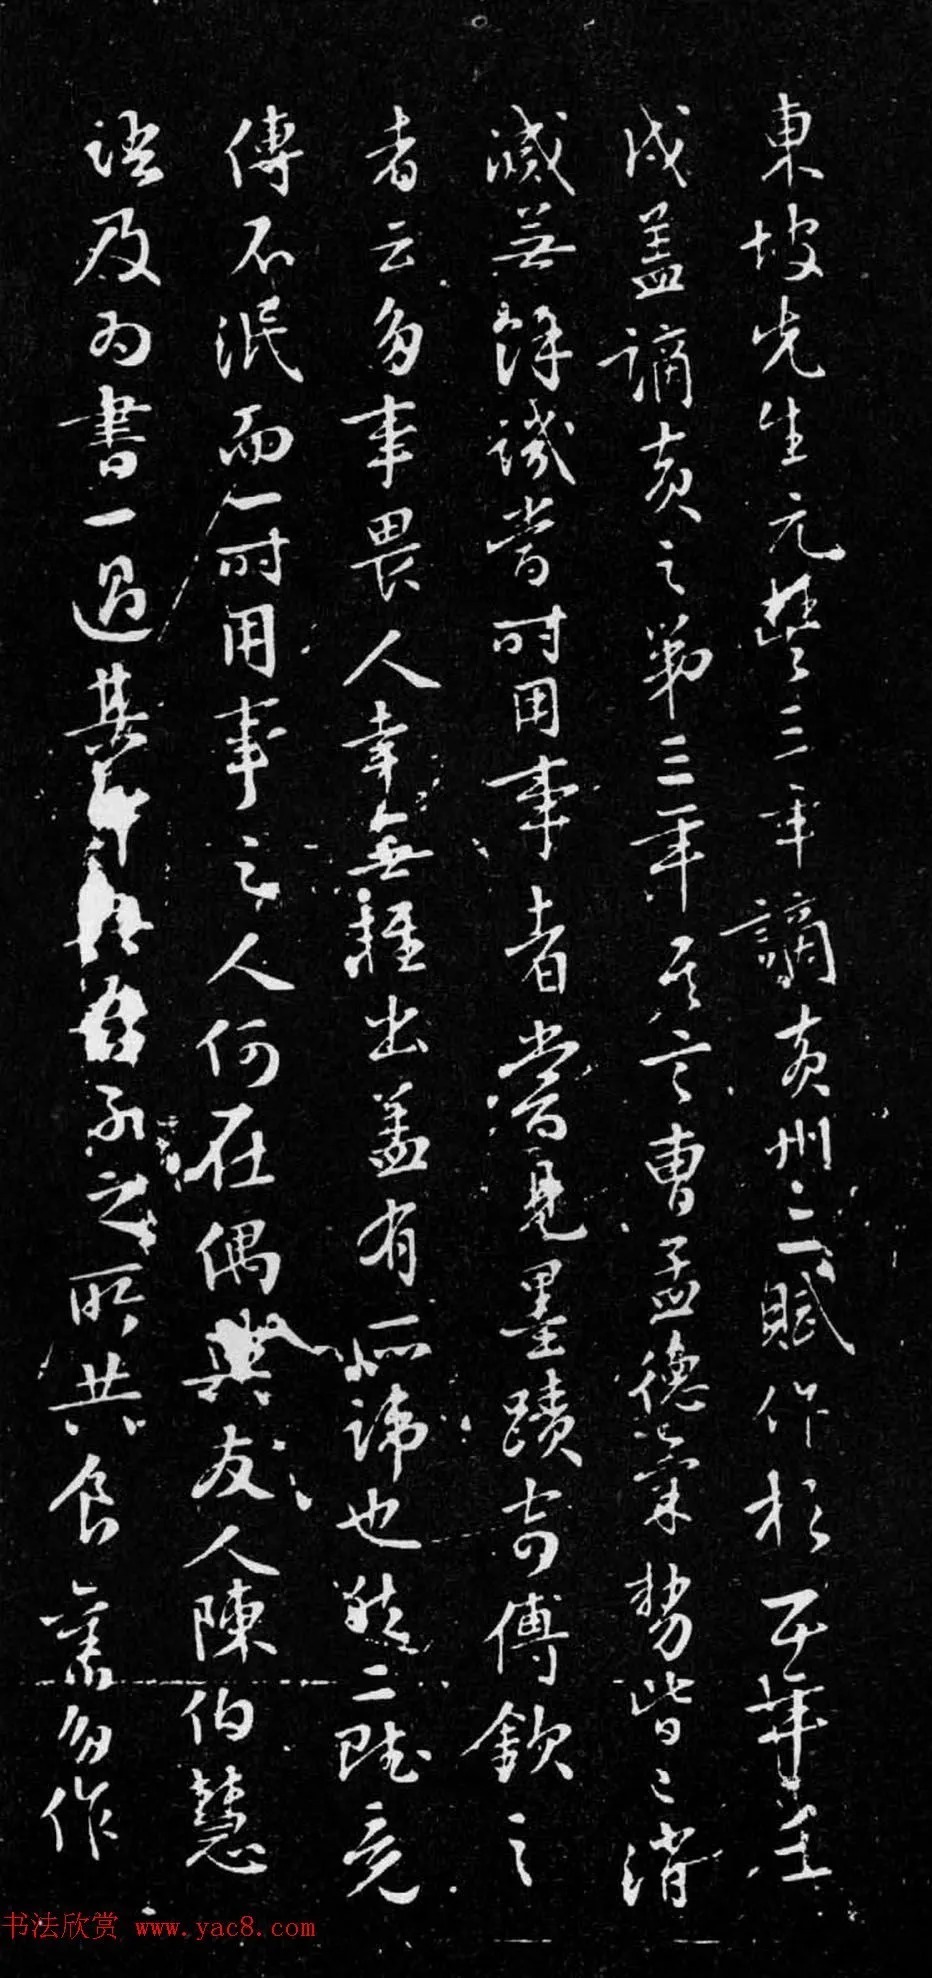 東坡先生元豐三年謫黄州二賦作於五年壬
戌蓋謫黄之第三年其言曹孟德氣勢皆已消
滅無餘譏當時用事者嘗見墨蹟寄傅欽之
者云多事畏人幸無輕出蓋有所諱也然二賦竟
傳不泯而一時用事之人何在偶與友人陳伯慧
語及為書一過其子之所共食舊多作
书法欣赏 www.yac8.com